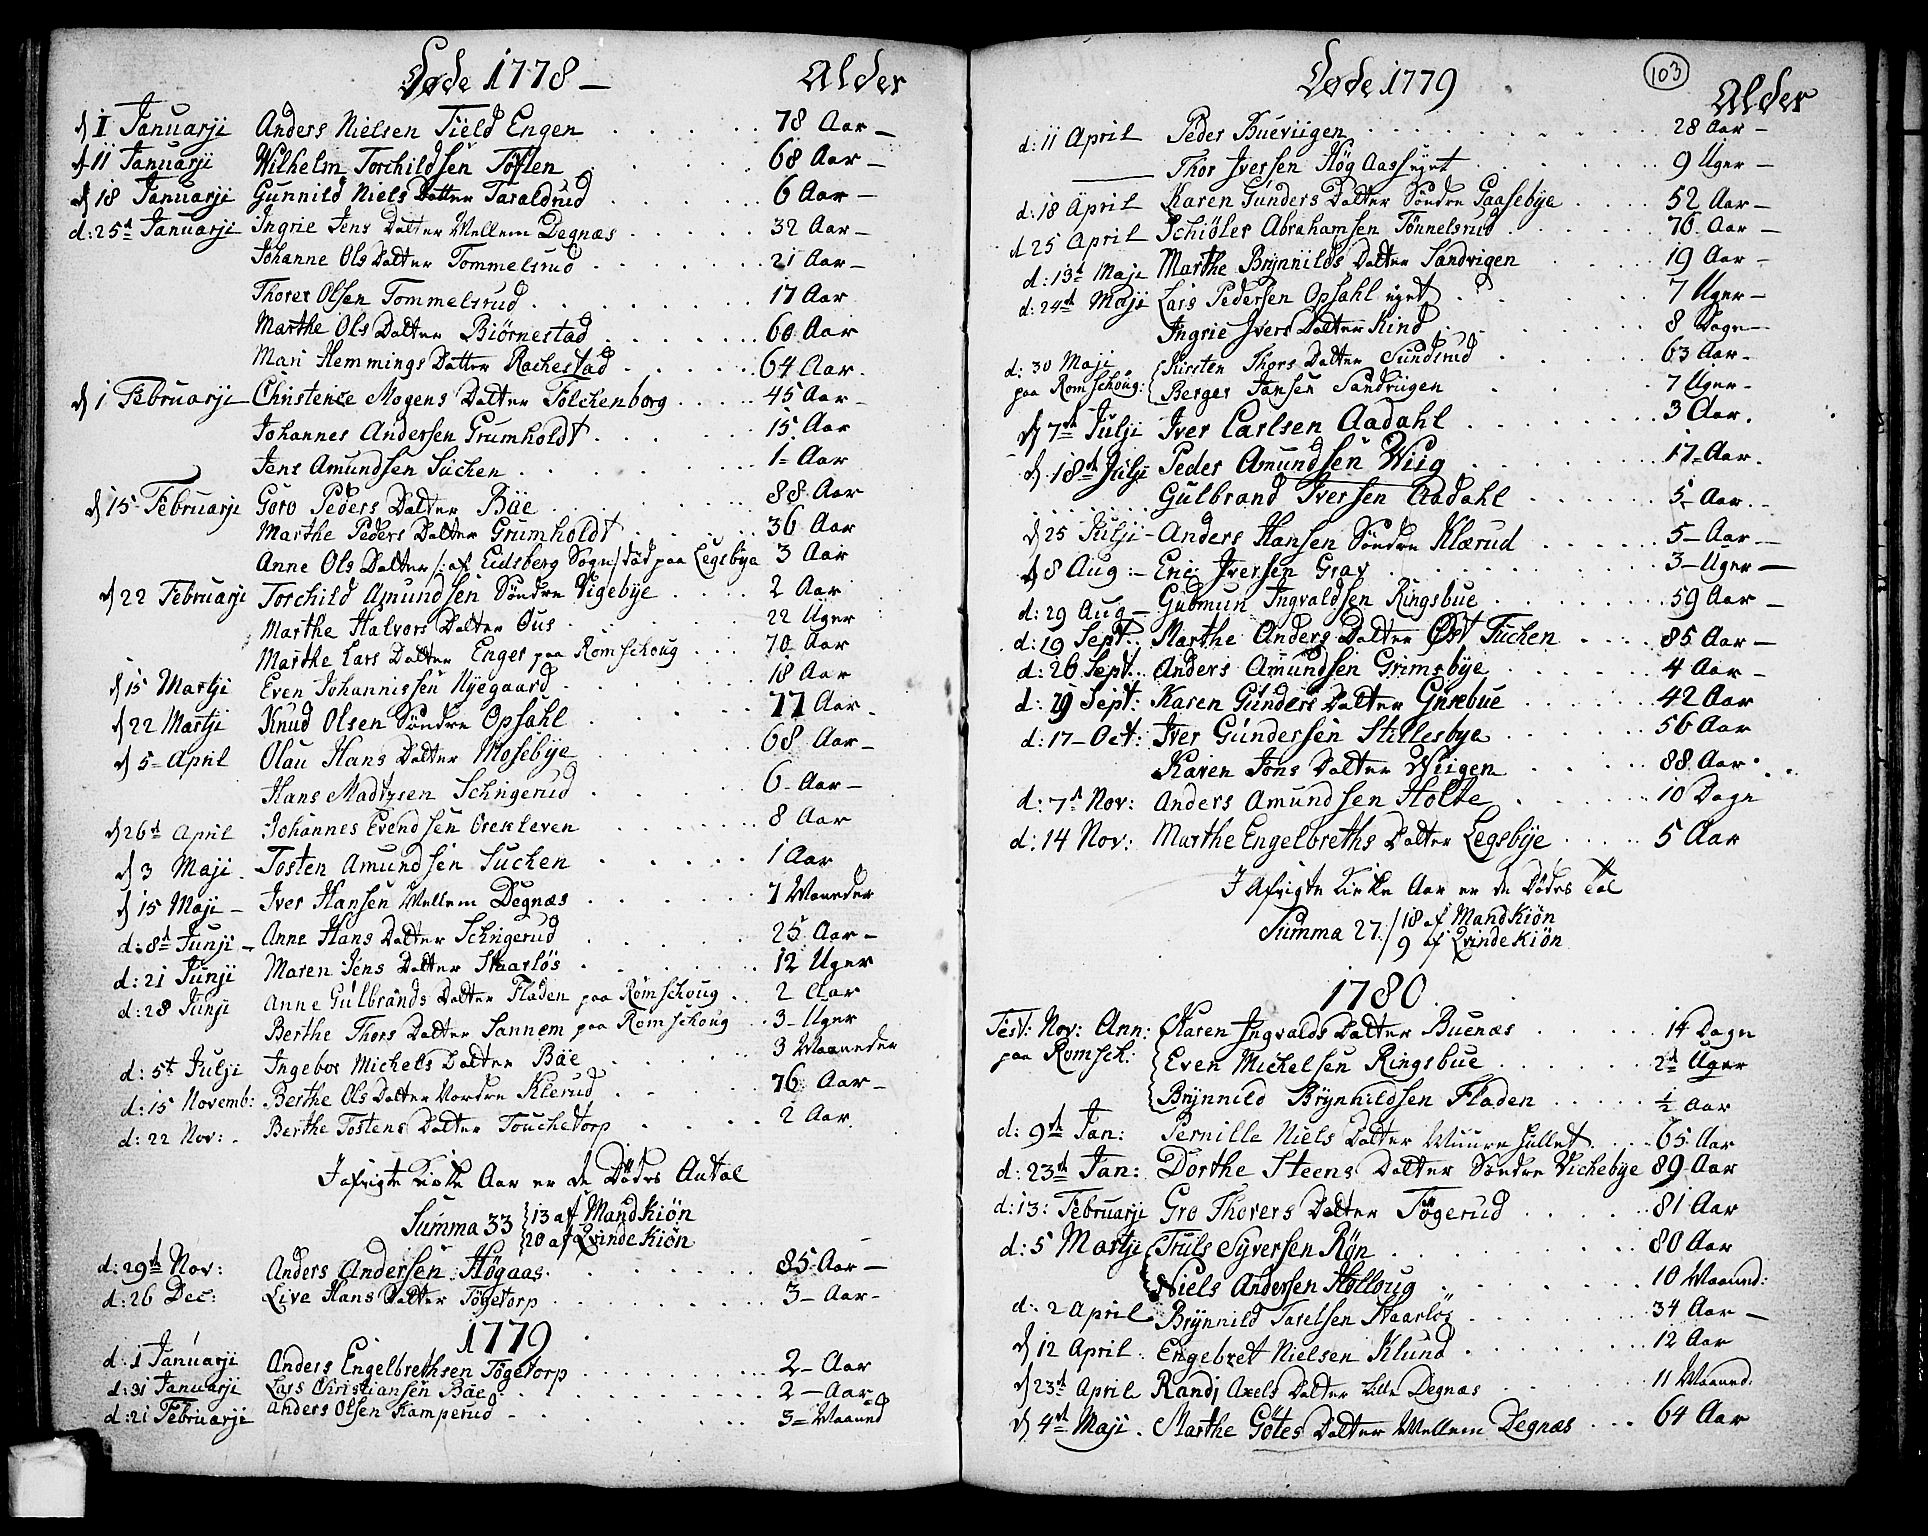 Døde 1778 — Alder
d 1 Januarji Anders Nielsen Tield Engen 78 Aar —
d 11 Januarji Wilhelm Torchildsen Töften 68 Aar —
d 18 Januarji Gunnild Niels Datter Taraldrud 6 Aar —
d: 25d Januarji Ingrie Jens Datter Mellem Degnæs 32 Aar —
Johanne Ols Datter Tommelsrud 21 Aar —
Thorer Olsen Tommelsrud 17 Aar
Marthe Ols Datter Biörnestad 60 Aar
Mari Hemmings Datter Rachestad 64 Aar.
d 1 Februarji Christence Mogens Datter Folchenborg 45 Aar —
Johannes Andersen Grumholdt 15 Aar
Jens Amundsen Süchen 1 = Aar
d 15 Februarji Goro Peders Datter Bäe 88 Aar
Marthe Peders Datter Grumholdt 36 Aar
Anne Ols Datter /: af Eidsberg Sogn / död paa Legsbye 3 Aar
d 22 Februarji Torchild Amundsen Söndre Vigebye 2 Aar
Marthe Halvors Datter Ous 22 Uger
Marthe Lars Datter Enger paa Romschoug 70 Aar
d 15 Martji Even Johannissen Nyegaard 18 Aar
d 22 Martji Knud Olsen Söndre Opsahl 77 Aar
d 5 - April Olau Hans Datter Mosebye 68 Aar —
Hans Madtzsen Schigerud 6 - Aar —
d 26d April Johannes Evendsen Orekleven 8 Aar
d 3 Maji Tosten Amundsen Süchen 1 Aar
d 15 Maji — Iver Hansen Mellem Degnæs 7 Maaneder
d: 8d Junji — Anne Hans Datter Schigerud 25 Aar —
d: 21 Junji Maren Jens Datter Skaarlös 12 Uger
d: 28 Junji Anne Gulbrands Datter Fladen paa Römschoug 2 Aar
Berthe Thors Datter Sannem paa Romschoug 3 - Uger
d: 5t Julji Ingebor Michels Datter Bäe 3 Maaneder
d: 15 Novemb: Berthe Ols Datter Nordre Klerud 76 Aar —
d: 22 Nov: Berthe Tostens Datter Touchetorp 2 Aar.
I afvigte Kirke Aar er de Dödes Antal
Summa 33 { 13 af Mandkiön
20 af Qvindekiön
d: 29d Nov: Anders Andersen Högaas 85 Aar —
d: 26 Dec: Live Hans Datter Tögetorp 3 — Aar -
1779
d: 1 Januarji Anders Engelbrethsen Togetorp 2 — Aar
d: 31 Januarji Lars Christiansen Bäe 2 — Aar
d: 21 Februarji Anders Olsen Kamperud 3 = Maaned
Døde 1779 103 Alder
d: 11 April Peder Bueviigen 28 Aar —
Thor Iversen Hög Aas 9 Uger —
d: 18 April Karen Gunders Datter Söndre Gaasebye 52 Aar —
d 25 April Schiöler Abrahamsen Tönnelsrud 76 Aar —
d: 13d Maji Marthe Brynnilds Datter Sandvigen 19 Aar —
d: 24d Maji Lars Pedersen Opsahl 7 Uger —
Ingrie Ivers Datter Kind 8 Dage —
d: 30 Maji { Kirsten Thors Datter Sundsrud 63 Aar —
paa Romschoug: Berger Jansen Sandvigen 7 Uger —
d 7d Julji Iver Carlsen Aadahl 3 Aar.
d 18d Julji Peder Amundsen Wiig 17 - Aar.
Gulbrand Iversen Aadahl 5 - Aar
d 25 Julji - Anders Hansen Söndre Klærud 5 - Aar
d 8 Aug: — Eric Iversen Grav 3 - Uger —
d: 29 Aug — Gudmun Ingvaldsen Ringsbue 59 Aar —
d: 19 Sept: Marthe Anders Datter Öst Tüchen 85 Aar —
d: 26 Sept: Anders Amundsen Grimsbye 4 Aar —
d: 29 Sept: Karen Gunders Datter 42 Aar
d: 17 - Oct: Iver Gundersen Stillesbye 56 Aar
Karen Jons Datter Wiigen 88 Aar
d: 7d Nov: Anders Amundsen Holte 10 Dage
d: 14 Nov: Marthe Engelbreths Datter Legsbye 5 Aar
I Afvigte Kirke Aar er de Dödes Tal
Summa 27. / 18 af Mandkiön
9 af Qvindekiön
1780
Fest: Nov: Ann: { Karen Ingvalds Datter Buenæs 14 Dage
paa Romsch: Even Michelsen Ringsbue 2d Uger
Brynnild Brynhildsen Fladen ½ Aar
d: 9d Jan: Pernille Niels Datter Muurehullet 65 Aar
d: 23d Jan: Dorthe Steens Datter Söndre Vichebye 89 Aar
d: 13: Februarji Gro Thorers Datter Tögerud 81 Aar
d: 5 Martji { Truls Syversen Rön 80 Aar
Niels Andersen Holloug 10 Maaned:
d: 2 April Brynnild Tarelsen Skaarlös 34 Aar —
d 12 April Engebret Nielsen Klund 12 Aar
d 23d April Randj Axels Datter Lille Degnæs 11 Maaned:
d 4d Maji. Marthe Götes Datter Mellem Degnæs 64 Aar